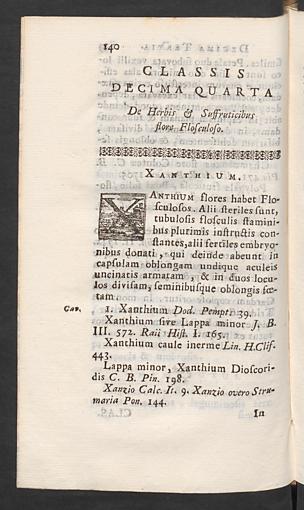 140
CLASSIS
DECIMA QUARTA
De Herbis & Suffruticibus
flore Flosculoso.
XANTHIUM.
XANTHIUM flores habet Flo-
sculosos. Alii steriles sunt,
tubulosis flosculis stamini-
bus plurimis instructis con-
stantes, alii fertiles embryo-
nibus donati, qui deinde abeunt in
capsulam oblongam undique aculeis
uncinatis armatam, & in duos locu-
los divisam, seminibusque oblongis fœ-
tam.
Cav. 1. Xanthium Dod. Pempt. 39.
Xanthium sive Lappa minor J. B.
III. 572. Raii Hist. I. 165.
Xanthium caule inerme Lin. H. Clif-
443.
Lappa minor, Xanthium Dioscori-
dis C. B. Pin. 198.
Xanzio Calc. It. 9. Xanzio overo Stru-
maria Pon. 144.
In